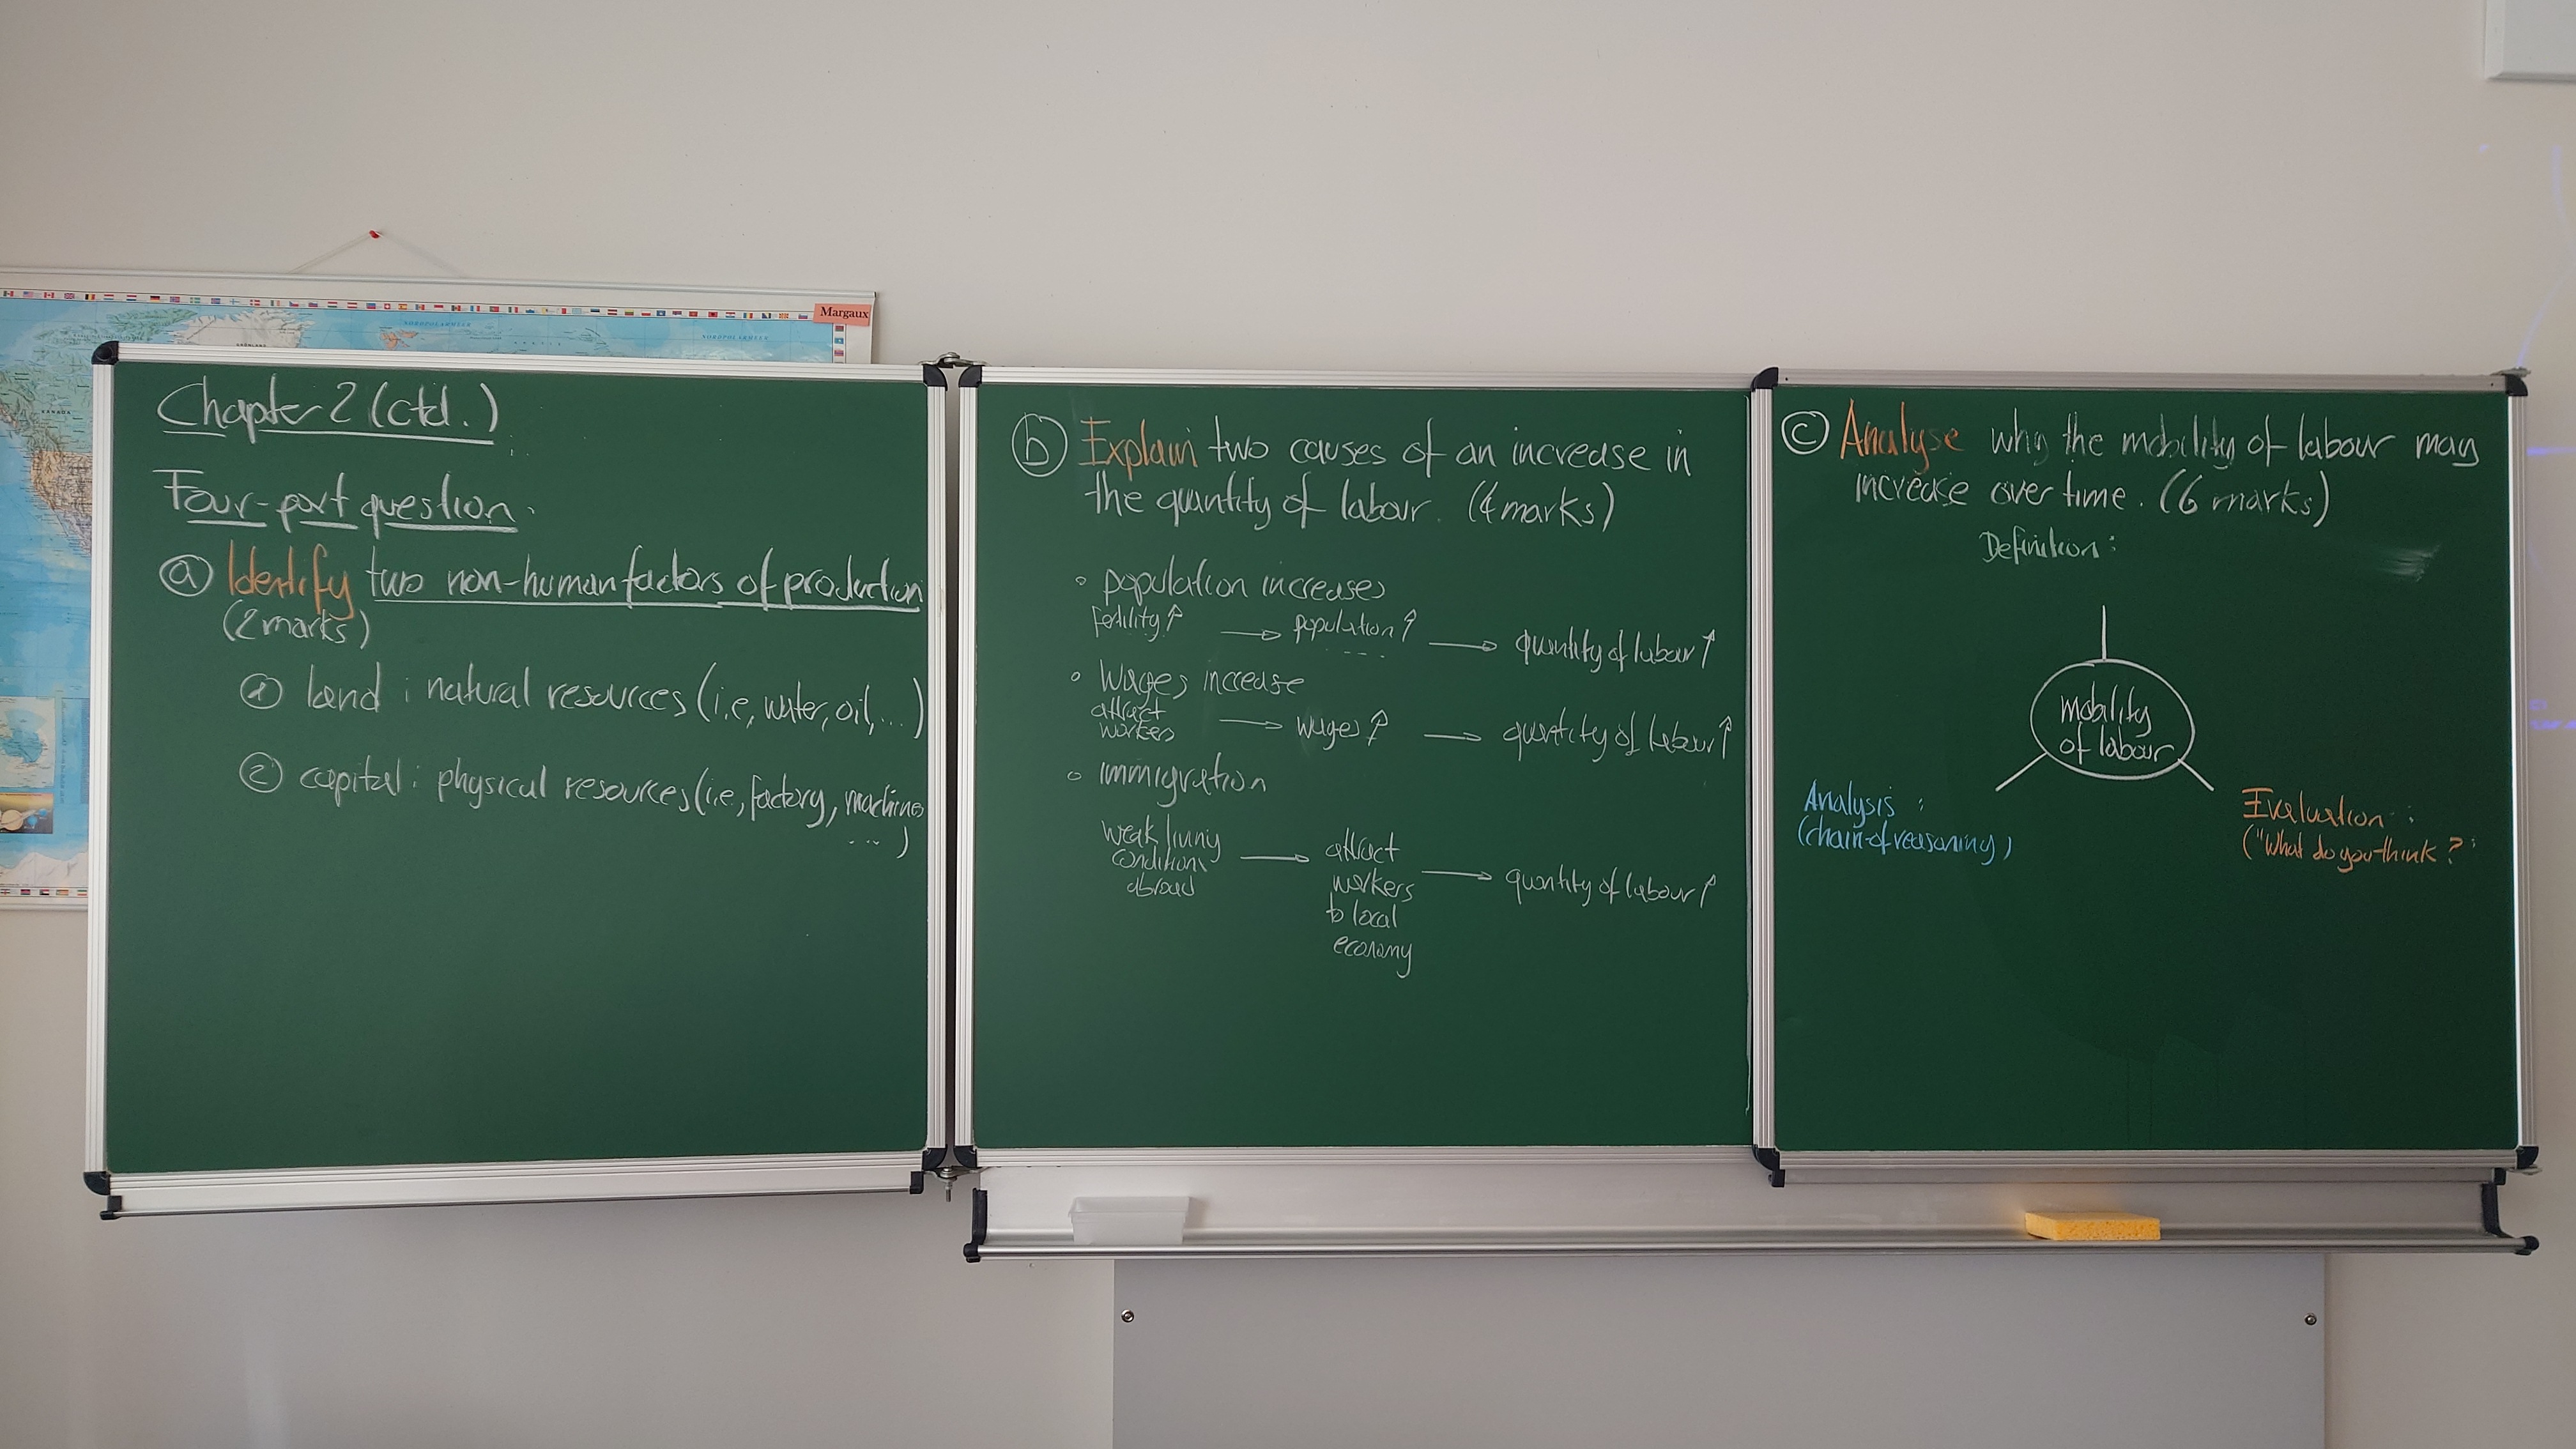 Margaux
NORDPOLARMEER
NORDPOLARMEER
KANADA
Chapter 2 (ctd.)
Four-part question:
ⓐ Identify two non-human factors of production
(2 marks)
① land : natural resources (i.e, water, oil, ...)
② capital : physical resources (i.e., factory, machines
...)
ⓑ Explain two causes of an increase in
the quantity of labour. (4 marks)
◦ population increases
fertility ↑ → population ↑ → quantity of labour ↑
◦ Wages increase
attract
workers → wages ↑ → quantity of labour ↑
◦ immigration
weak living
conditions
abroad → attract
workers
to local
economy → quantity of labour ↑
ⓒ Analyse why the mobility of labour may
increase over time. (6 marks)
Definition :
mobility
of labour
Analysis :
(chain of reasoning)
Evaluation :
("What do you think?"